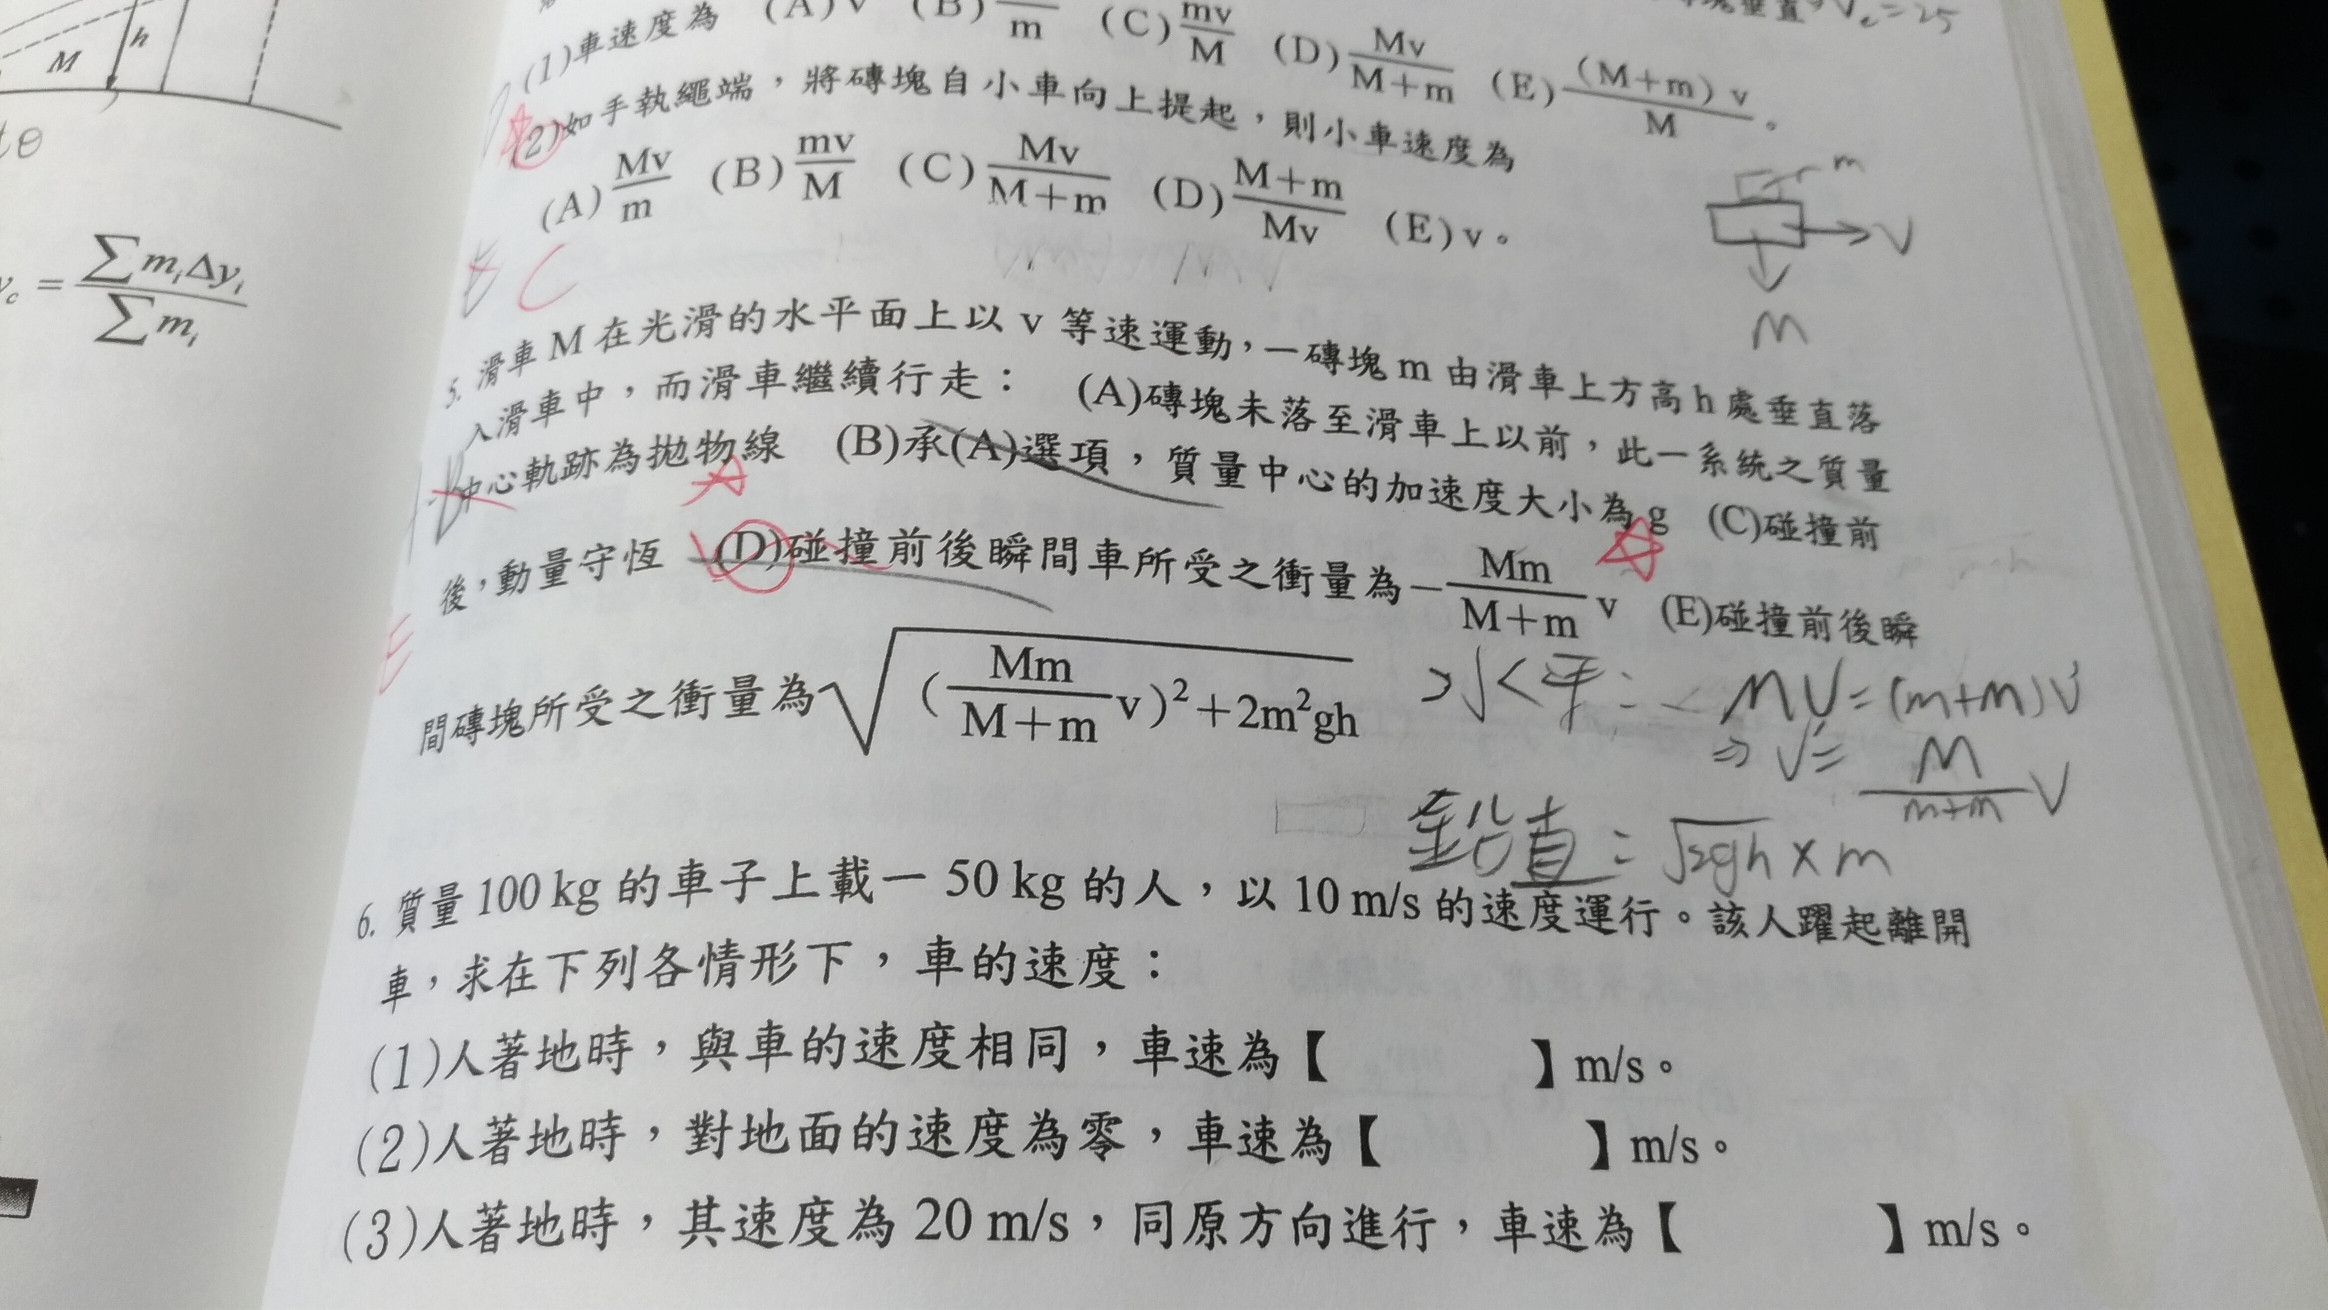 h
M
tθ
c = ∑ m_i Δy_i / ∑ m_i
垂直 V_e=25
(1)車速度為 (A)v (B) /m (C) mv/M (D) Mv/(M+m) (E) (M+m) v/M 。
(2)如手執繩端，將磚塊自小車向上提起，則小車速度為
(A) Mv/m (B) mv/M (C) Mv/(M+m) (D) (M+m)/Mv (E) v。
m
V
M
C
5. 滑車 M 在光滑的水平面上以 v 等速運動，一磚塊 m 由滑車上方高 h 處垂直落
入滑車中，而滑車繼續行走： (A)磚塊未落至滑車上以前，此一系統之質量
中心軌跡為拋物線 (B)承(A)選項，質量中心的加速度大小為 g (C)碰撞前
後，動量守恆 (D)碰撞前後瞬間車所受之衝量為 − Mm/(M+m) v (E)碰撞前後瞬
間磚塊所受之衝量為 √((Mm/(M+m) v)²+2m²gh)
E
水平： MV=(m+M)V'
⇒ V'= M/(m+M) V
鉛直：√2gh × m
6. 質量 100 kg 的車子上載一 50 kg 的人，以 10 m/s 的速度運行。該人躍起離開
車，求在下列各情形下，車的速度：
(1)人著地時，與車的速度相同，車速為【 】m/s。
(2)人著地時，對地面的速度為零，車速為【 】m/s。
(3)人著地時，其速度為 20 m/s，同原方向進行，車速為【 】m/s。